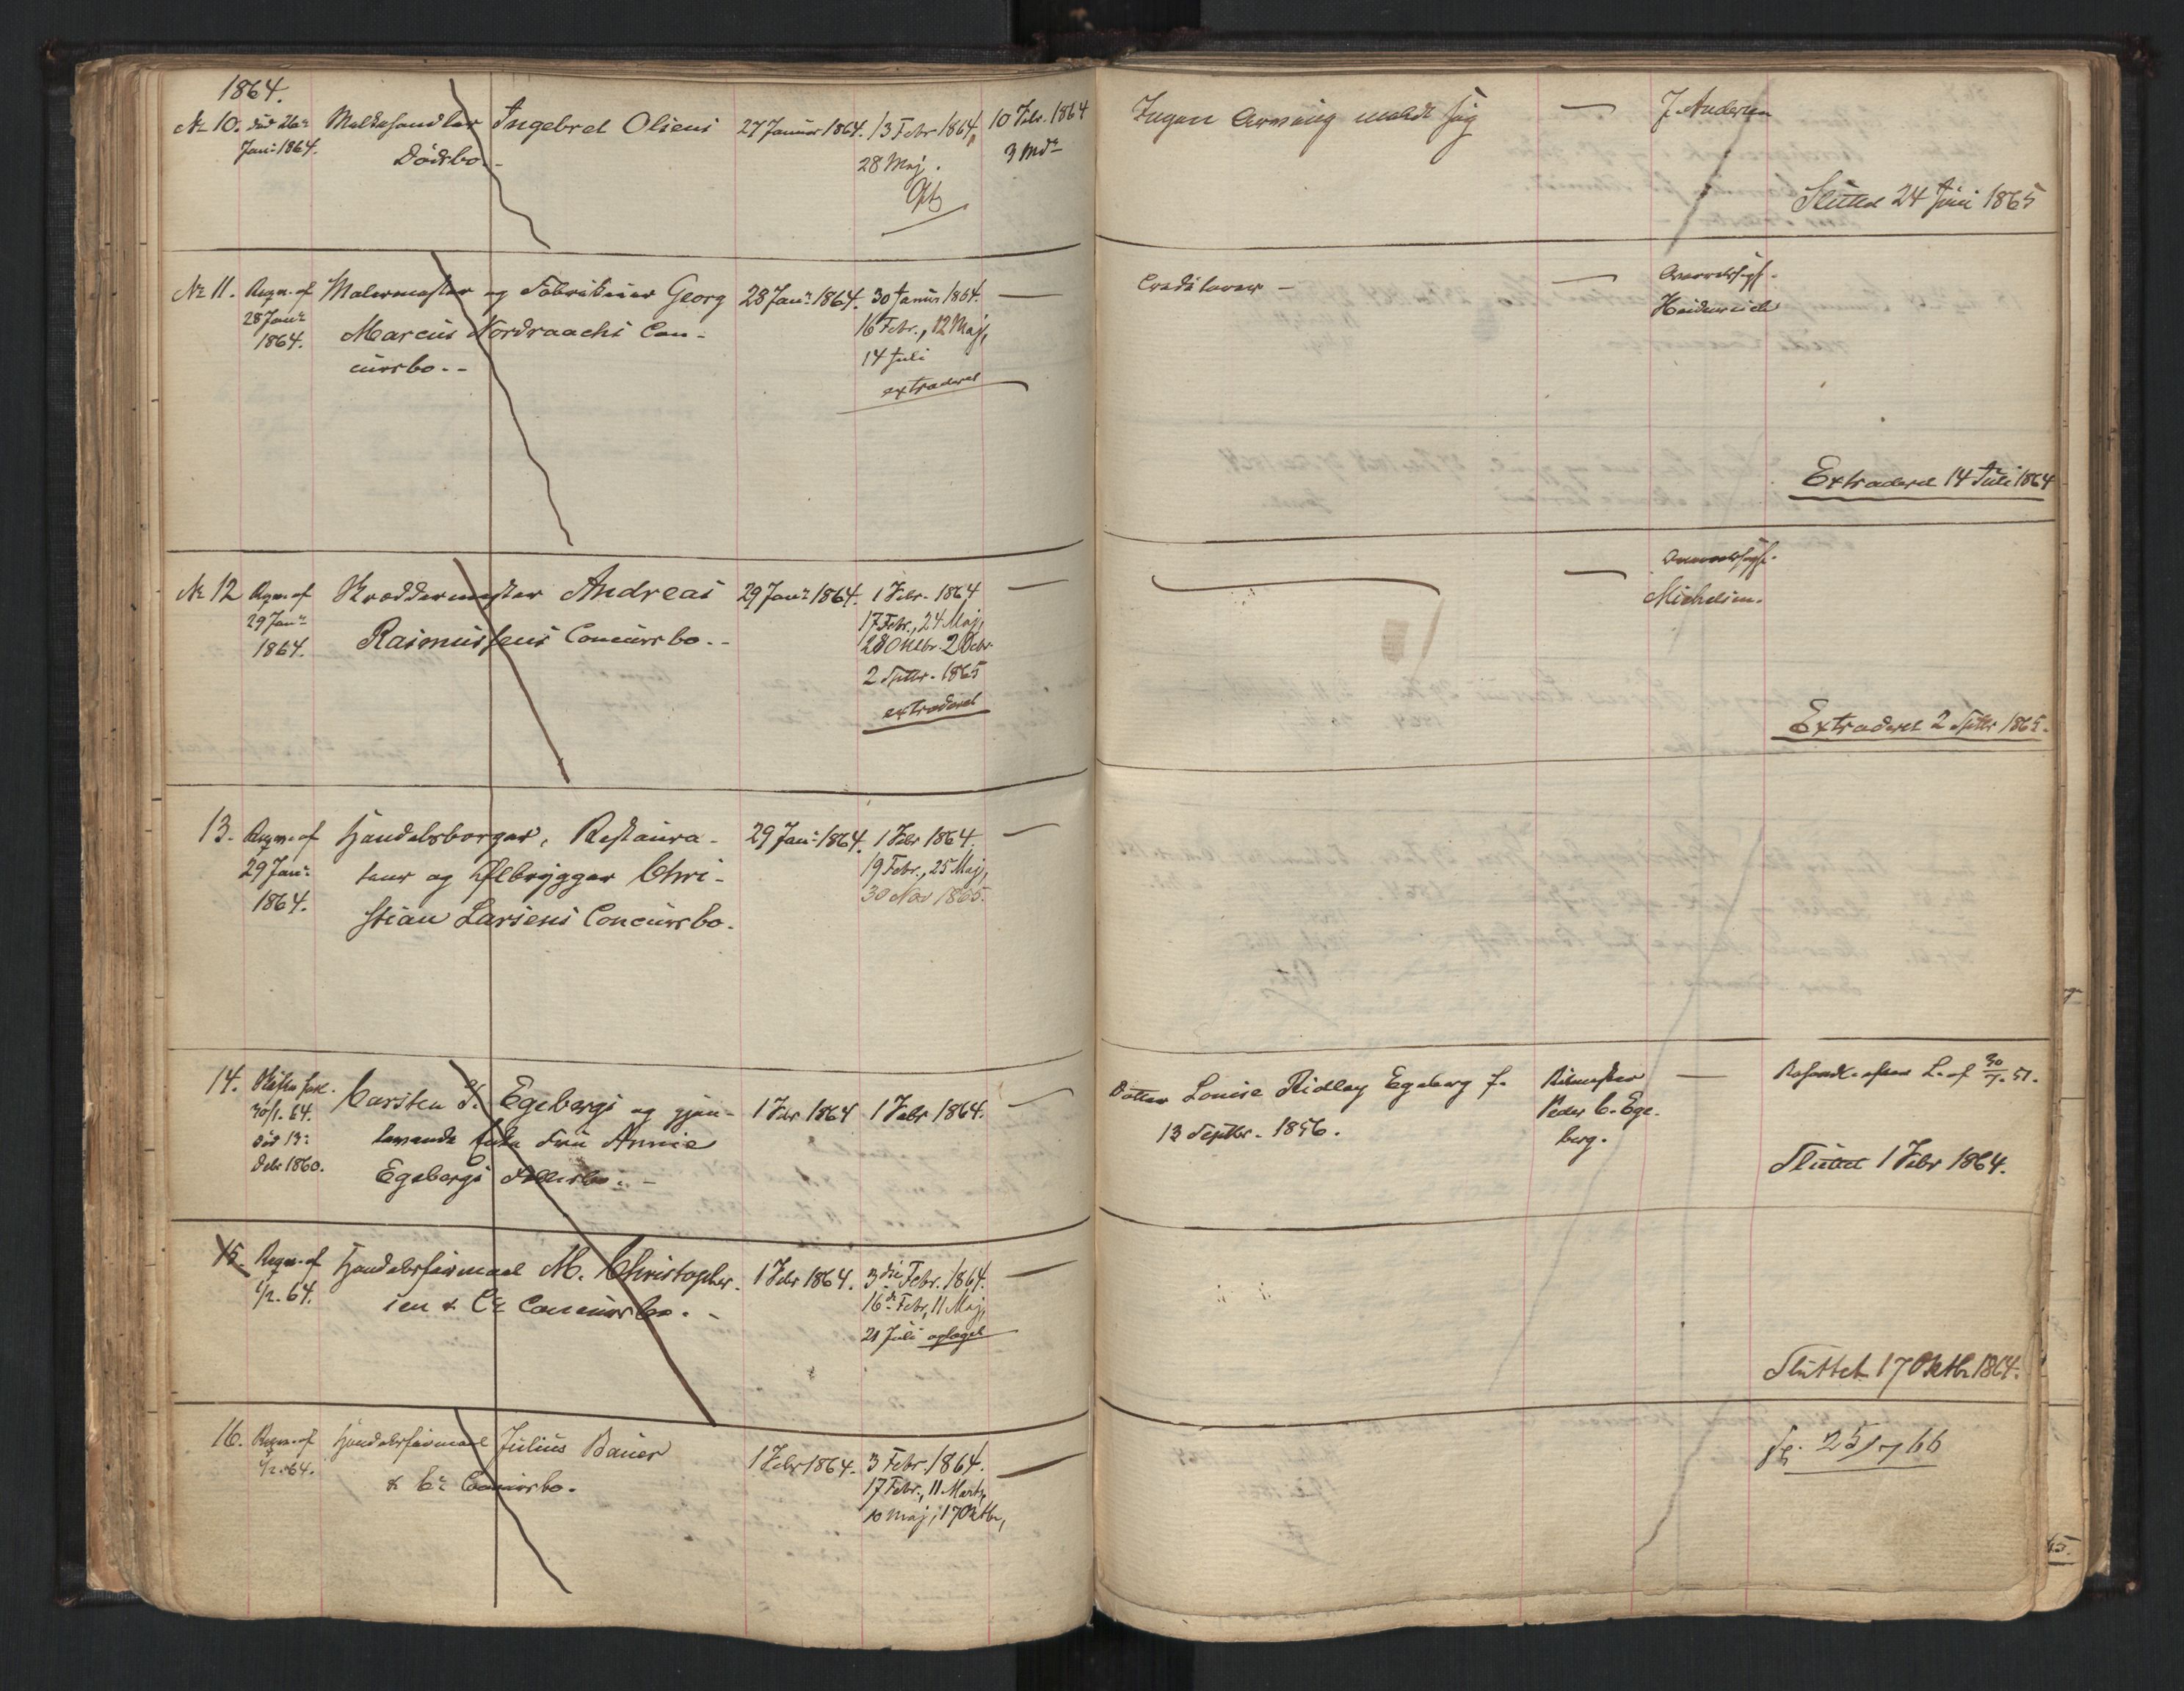 1864.
No 10. død 26de Melkehandler Ingebret Olsens 27 Januar 1864. 13 Febr 1864, 10 Febr. 1864
Jan: 1864. Dødsbo. - 28 Maj. 3 Mdr
Ingen Arving meldt sig — J. Andersen
Sluttet 24 Juni 1865
No 11. Reqn. af Malermester og Fabrikeier Georg 28 Janr 1864. 30 Januar 1864. —
28 Janr Marcus Nordraachs Con- 16 Febr., 12 Maj,
1864. cursbo. - 14 Juli
extraderet
Creditorer - — Overretssagf.
Heidenreich
Extraderet 14 Juli 1864
No 12 Reqn. af Skræddermester Andreas 29 Janr 1864. 1 Febr. 1864 —
29 Janr Rasmussens Concursbo. - 17 Febr., 24 Maj,
1864. 28 Octbr. 2 Decbr.
2 Septbr. 1865
extraderet
— Overretssagf.
Michelsen.
Extraderet 2 Septbr 1865.
13. Reqn. af Handelsborger, Restaura- 29 Jan: 1864. 1 Febr 1864. —
29 Jan: teur og Ølbrygger Chri- 19 Febr., 25 Maj,
1864. stian Larsens Concursbo. 30 Nov 1865.
14. Carsten T. Egebergs og gjen- 1 Febr 1864 1 Febr 1864. —
30/1. 64. levende Enke Fru Annie
død 13: Egebergs
Debr 1860.
Datter Louise Ridley Egeberg f. Ritmester —
13 Septbr. 1856. Peder C. Ege-
berg.
Sluttet 1 Febr 1864.
15. Reqn. af Handelsfirmaet M. Christopher- 1 Febr 1864. 3die Febr. 1864. —
1/2. 64. sen & Co Concursbo. - 16de Febr, 11 Maj,
21 Juli optaget
Sluttet 17 Oktbr 1864.
16. Reqn. af Handelsfirmaet Julius Bauer 1 Febr 1864. 3 Febr. 1864. —
1/2. 64. & Co Concursbo. 17 Febr., 11 Marts,
10 Maj, 17 Oktbr,
25/7 66